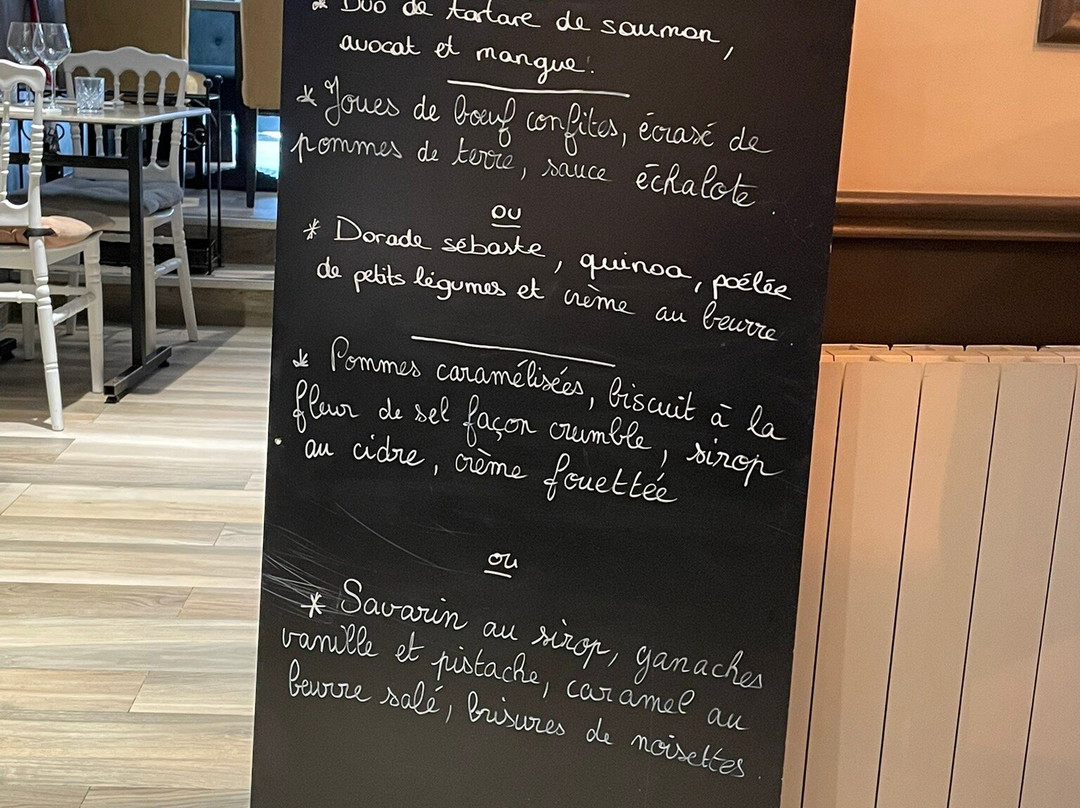 * Duo de tartare de saumon,
avocat et mangue.
* Joues de bœuf confites, écrasé de
pommes de terre, sauce échalote.
ou
* Dorade sébaste, quinoa, poêlée
de petits légumes et crème au beurre.
* Pommes caramélisées, biscuit à la
fleur de sel façon crumble, sirop
au cidre, crème fouettée
ou
* Savarin au sirop, ganaches
vanille et pistache, caramel au
beurre salé, brisures de noisettes.